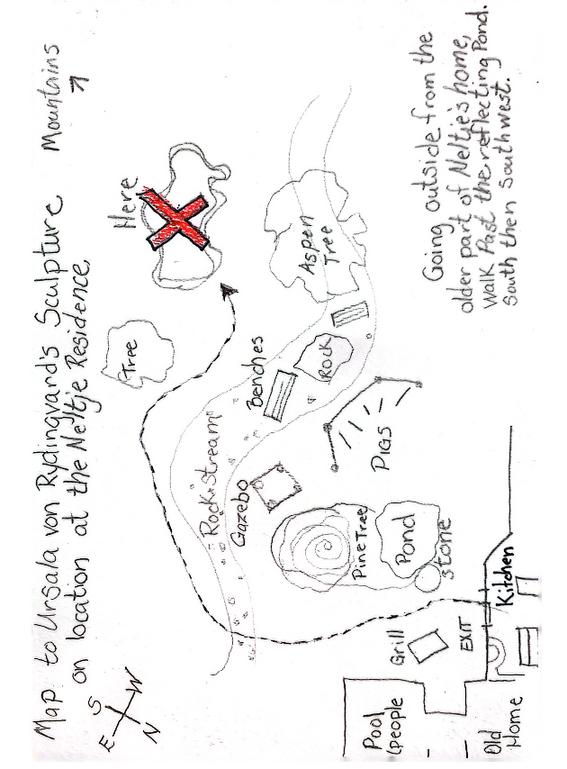 Map to Ursala von Rydingvard's Sculpture
on location at the Neltje Residence.
Mountains
E
S
W
N
Here
Tree
Aspen
Tree
Rock
Benches
Rock Stream
Gazebo
PIGS
Pine Tree
Pond
Stone
Kitchen
Grill
EXIT
Pool
(people
Old
Home
Going outside from the
older part of Neltje's home,
Walk Past the reflecting Pond.
South then Southwest.